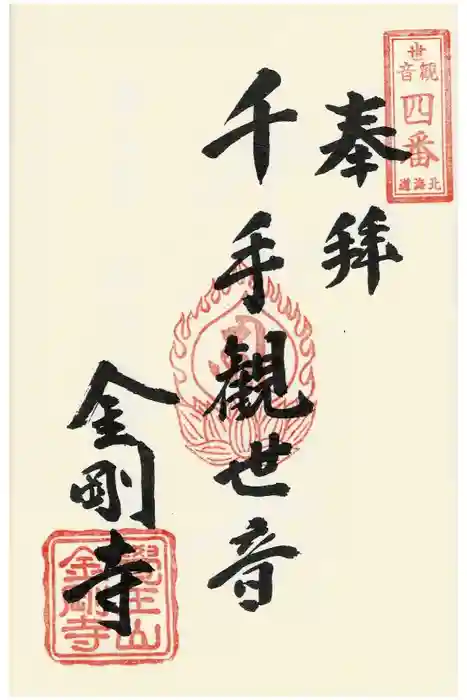 北海道
観世音
四番
奉拝
千手観世音
金剛寺
覺王山
金剛寺